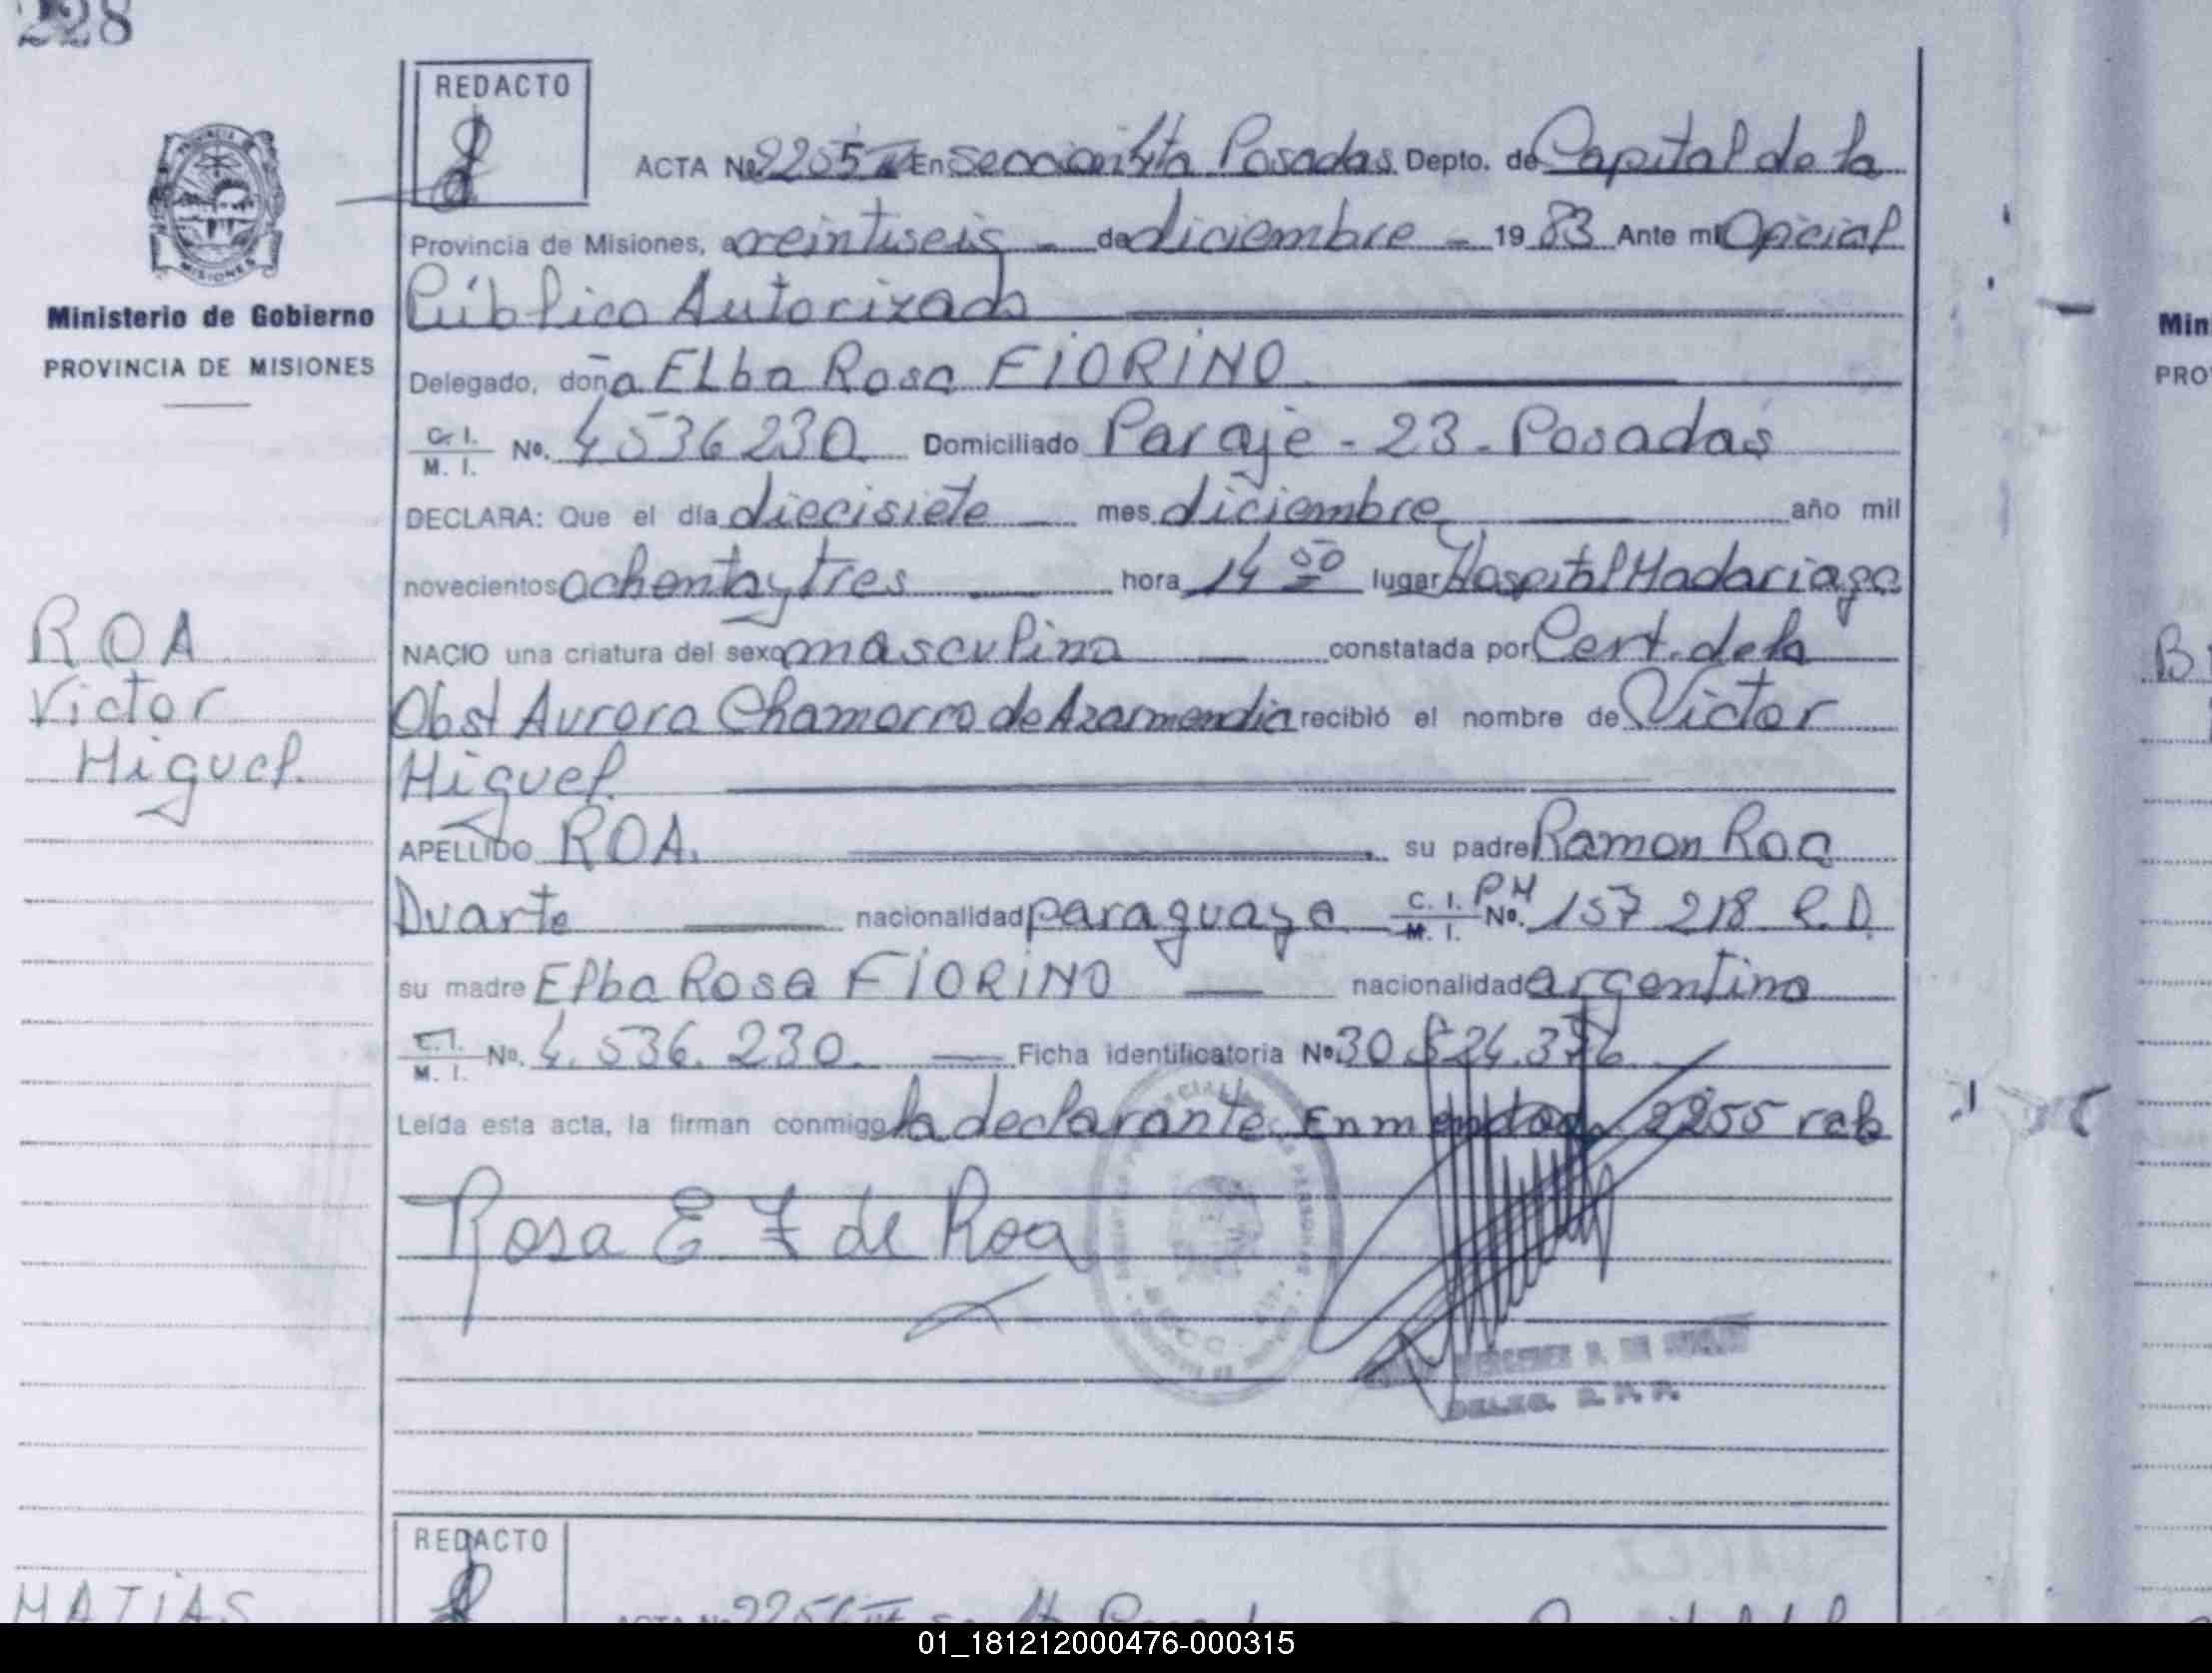 228
REDACTO
ACTA No. 2255 En Sección 4ta Posadas Depto. de Capital de la
Provincia de Misiones, a veintiseis - de diciembre - 19 83 Ante mi Oficial
Público Autorizado
Ministerio de Gobierno
PROVINCIA DE MISIONES
MISIONES
Delegado, doña Elba Rosa FIORINO
C. I. M. I. No. 4536230 Domiciliado Paraje - 23 - Posadas
DECLARA: Que el día diecisiete mes diciembre año mil
novecientos ochentaytres hora 14 50 lugar Hospital Madariaga
ROA
Victor
Miguel.
NACIO una criatura del sexo masculino constatada por Cert. de la
Obst Aurora Chamorro de Azarmendia recibió el nombre de Victor
Miguel
APELLIDO ROA. su padre Ramon Roa
Duarte nacionalidad paraguaya C. I. M. I. No. PM 157 218 R.D.
su madre Elba Rosa FIORINO nacionalidad argentina
C. I. M. I. No. 4.536.230. Ficha identificatoria No. 30.524.376
Leída esta acta, la firman conmigo la declarante. Enmendado 2255 vale
Rosa E F de Roa
DELEG. R. P. P.
REDACTO
MATIAS
ACTA No. 2256
Min
PRO
B
01_181212000476-000315